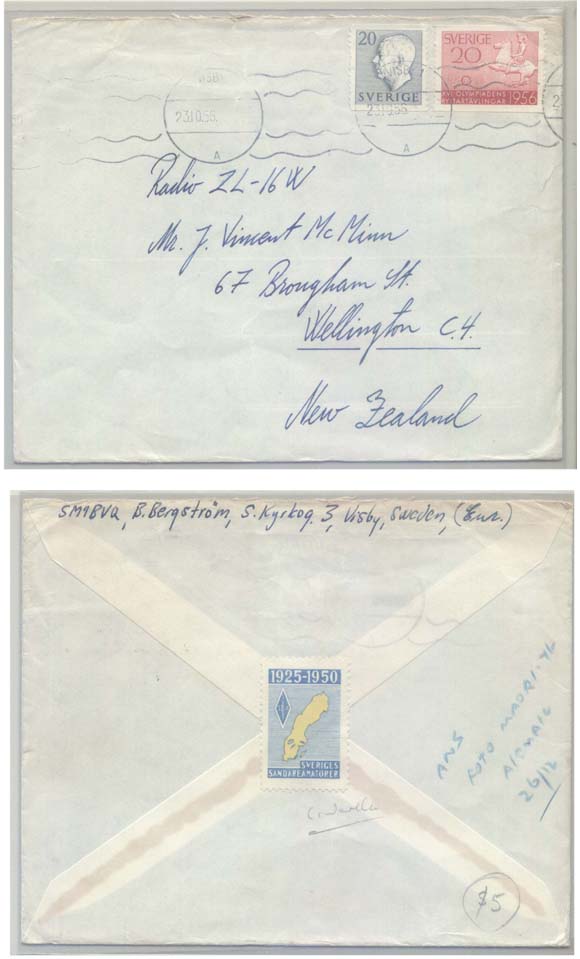 20
SVERIGE
SVERIGE
20
XVI OLYMPIADENS
RYTTARTÄVLINGAR 1956
23.10.56.
A
23.10.56.
A
Radio ZL-16W
Mr. J. Vincent McMinn
67 Brougham St.
Wellington C.4.
New Zealand
SM1BVQ, B. Bergström, S. Kyrkog. 3, Visby, Sweden, (Eur.)
1925-1950
SVERIGES
SÄNDAREAMATÖRER
ANS
FOTO MAORI-YL
AIRMAIL
26/12
Cinderella
$5